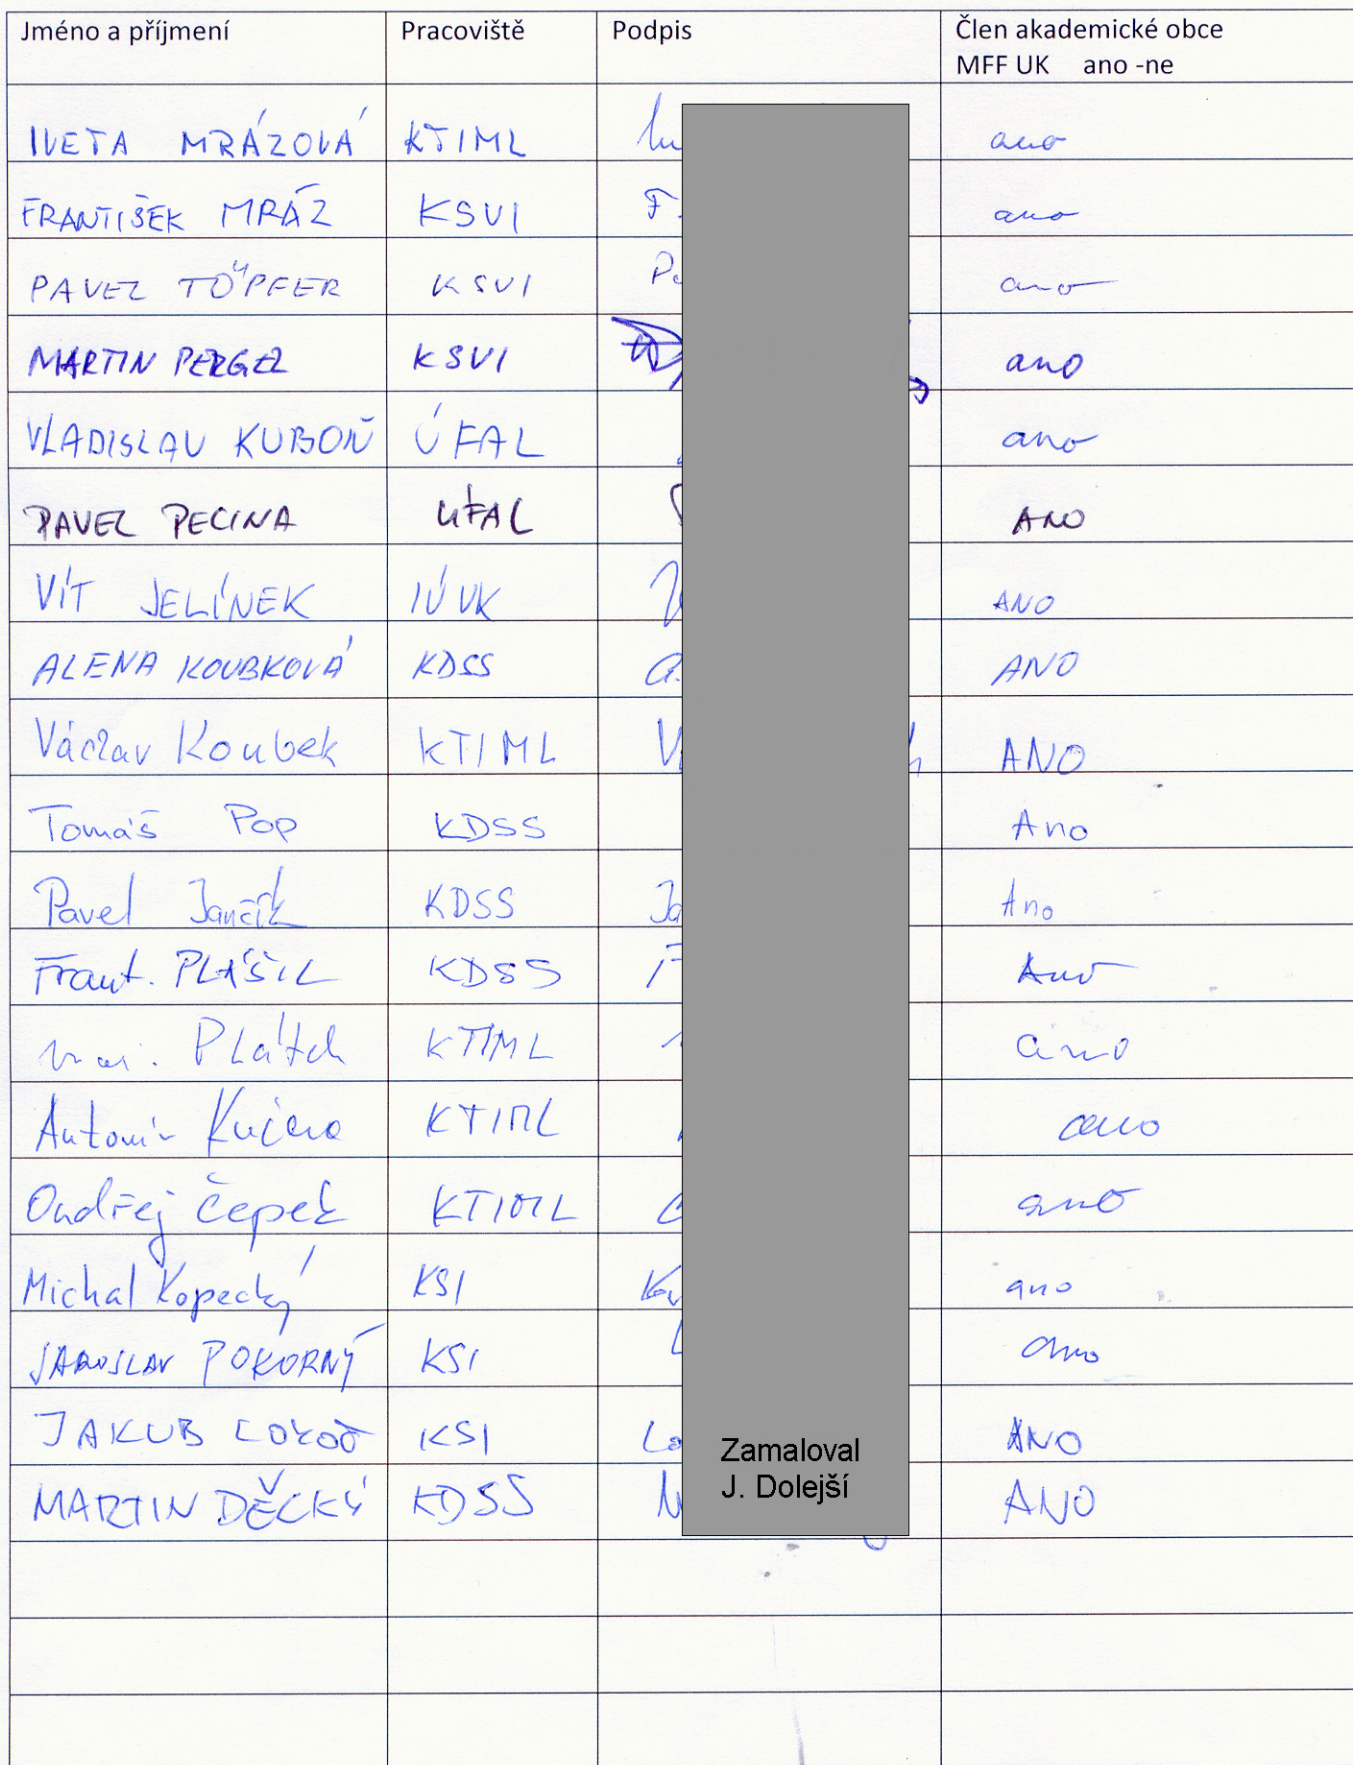 Jméno a příjmení Pracoviště Podpis Člen akademické obce
MFF UK ano -ne
IVETA MRÁZOVÁ KTIML ano
FRANTIŠEK MRÁZ KSVI F. ano
PAVEL TÖPFER KSVI ano
MARTIN PERGEL KSVI ano
VLADISLAV KUBOŇ ÚFAL ano
PAVEL PECINA ÚFAL ANO
VÍT JELÍNEK IÚUK ANO
ALENA KOUBKOVÁ KDSS ANO
Václav Koubek KTIML ANO
Tomáš Pop KDSS Ano
Pavel Jančík KDSS Ano
Frant. PLÁŠIL KDSS Ano
Plátek KTIML ano
Antonín Kučera KTIML ano
Ondřej Čepek KTIML ano
Michal Kopecký KSI ano
JAROSLAV POKORNÝ KSI ano
JAKUB LOKOČ KSI ANO
Zamaloval
J. Dolejší
MARTIN DĚCKÝ KDSS ANO